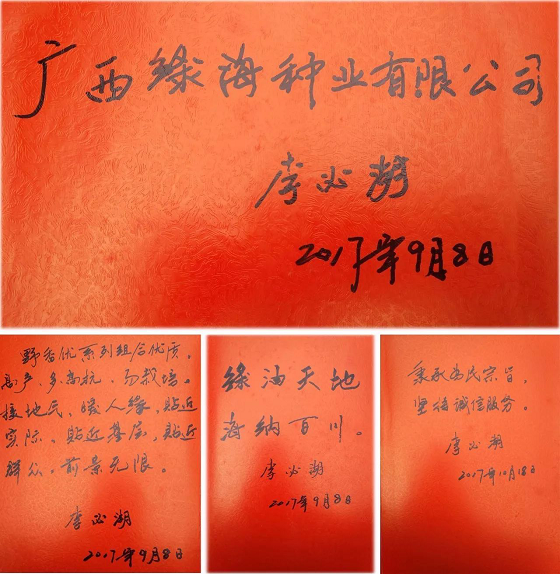 广西绿海种业有限公司
李必湖
2017年9月8日
野香优系列组合优质、
高产、多高抗、易栽培。
接地气、暖人缘、贴近
实际、贴近基层、贴近
群众。前景无限。
李必湖
2017年9月8日
绿油天地
海纳百川。
李必湖
2017年9月8日
秉承为民宗旨,
坚持诚信服务。
李必湖
2017年10月18日